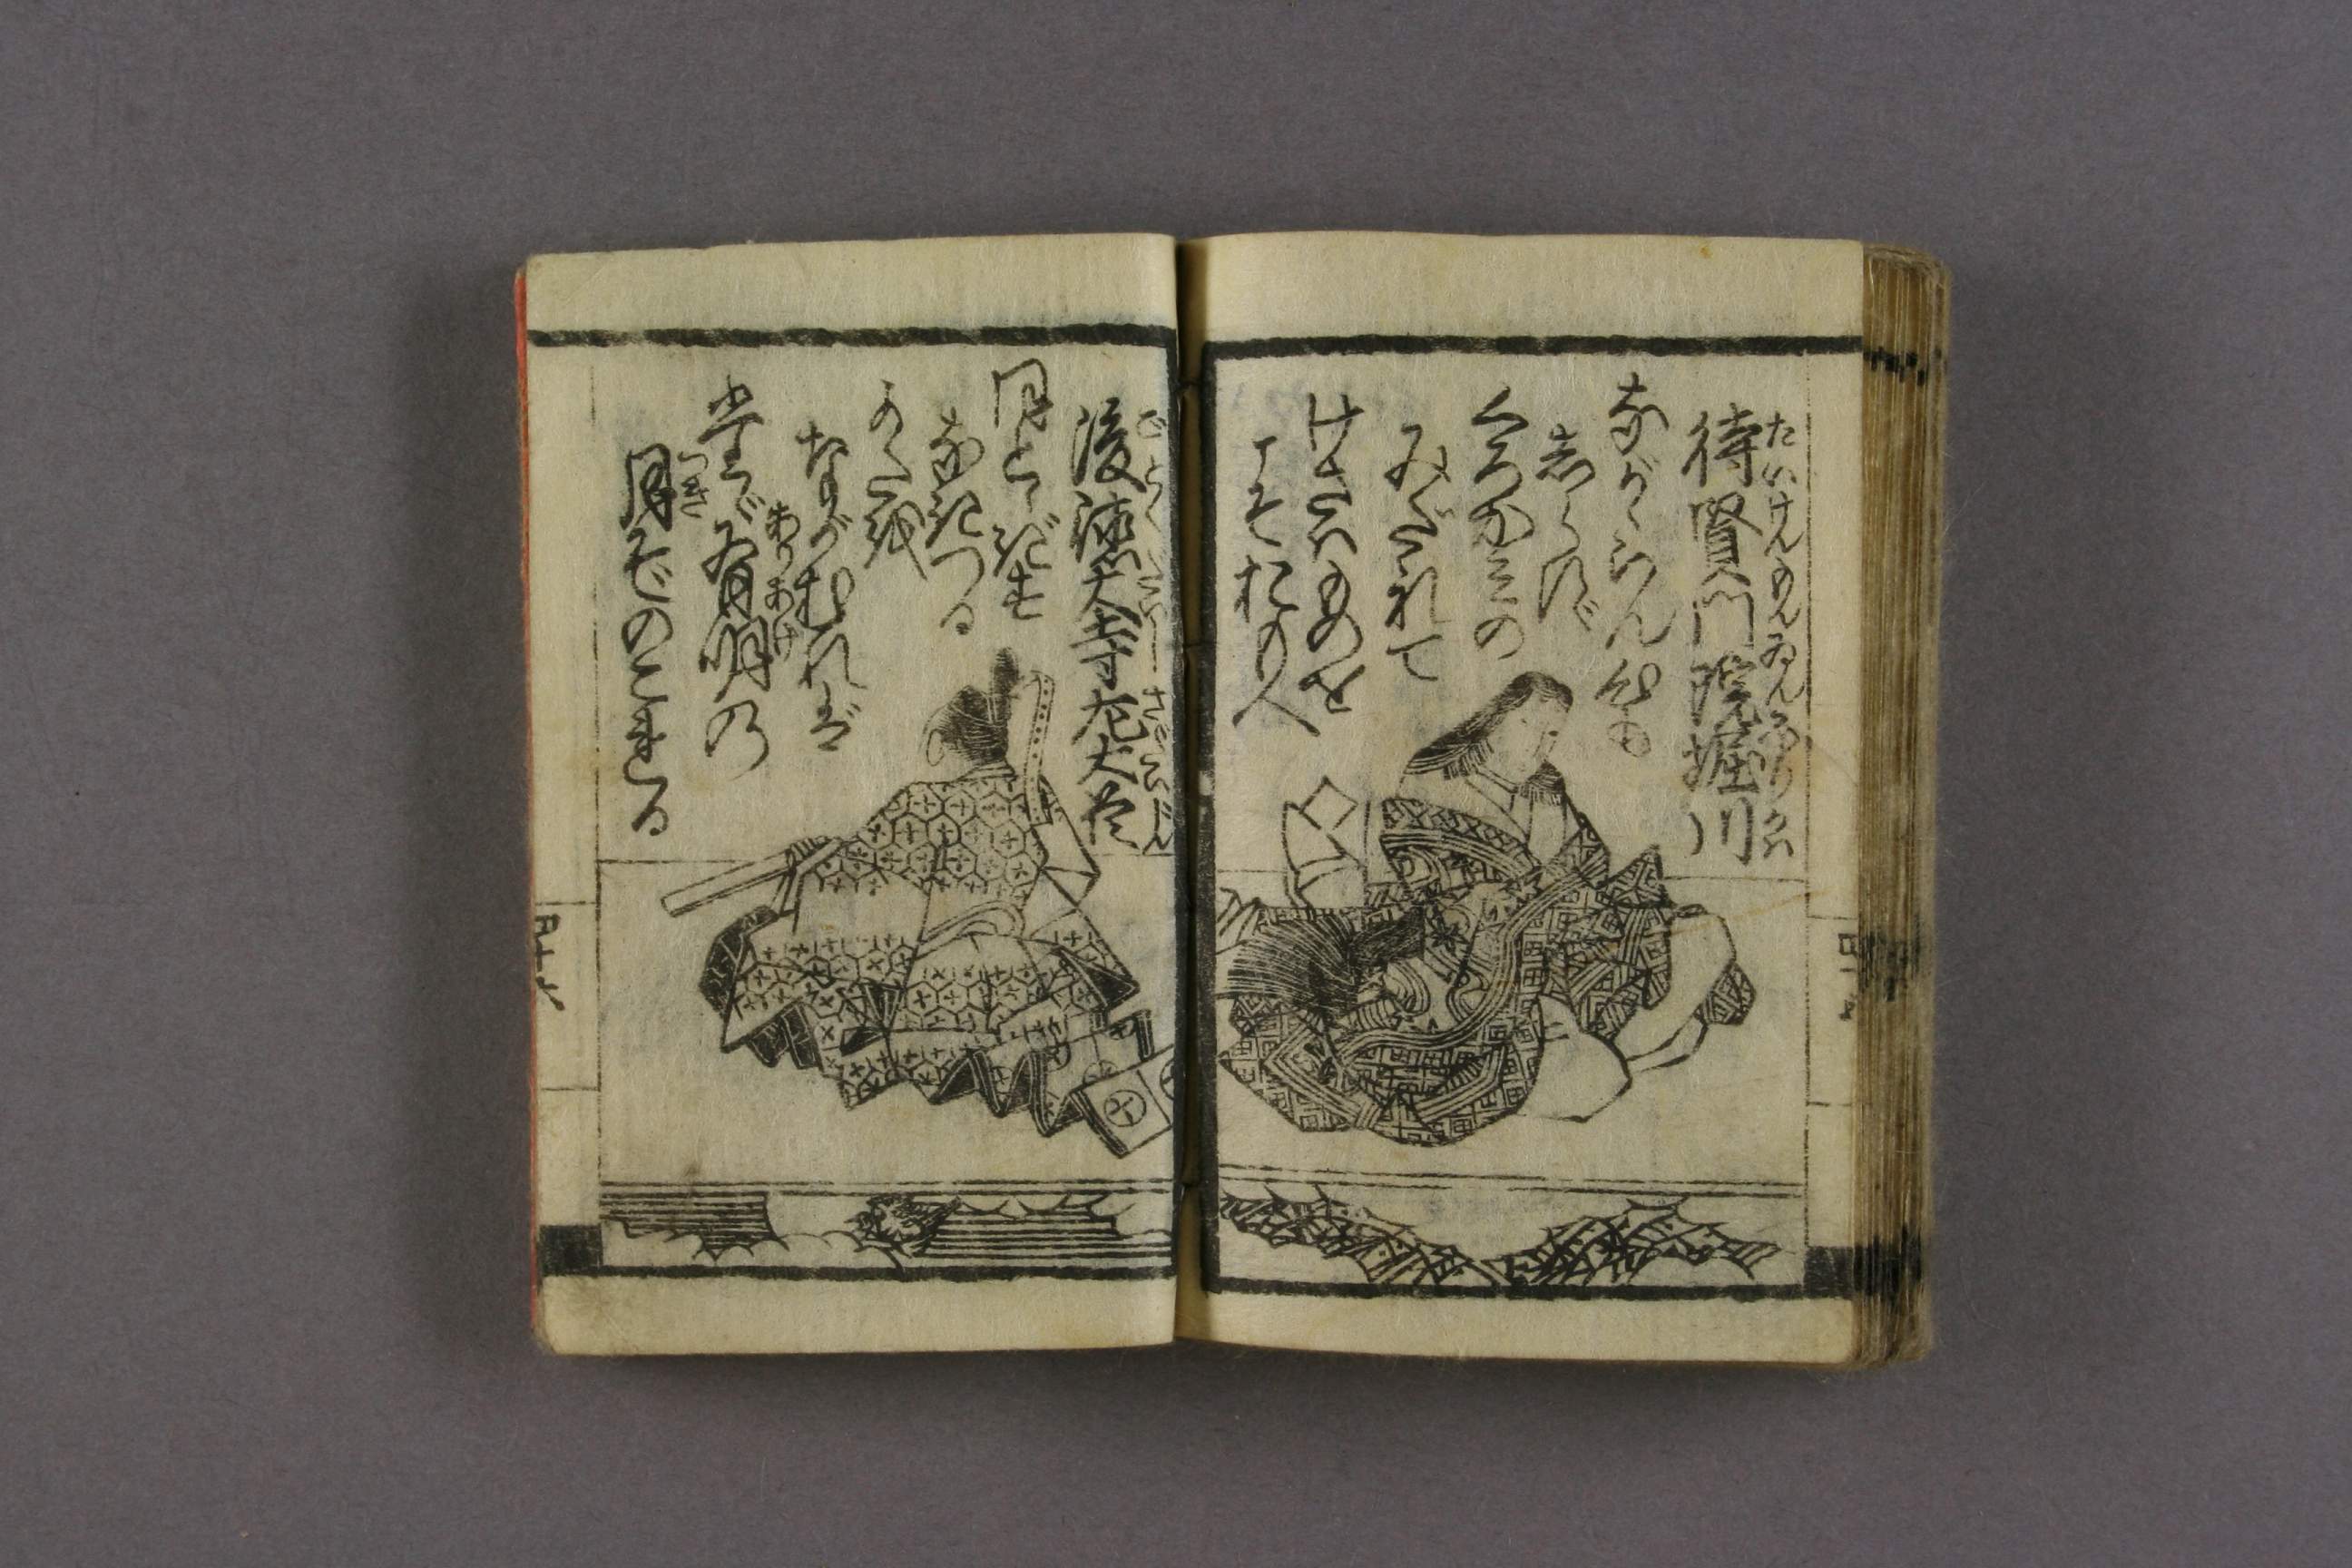 たいけんもんゐんほりかは
待賢門院堀川
ながゝらん心も
しらず
くろかみの
みだれて
けさはものを
こそおもへ
ごとくだいじさだいじん
後徳大寺左大臣
ほとゝぎす
なきつる
かたを
ながむれば
ありあけ
たゞ有明の
つき
月ぞのこれる